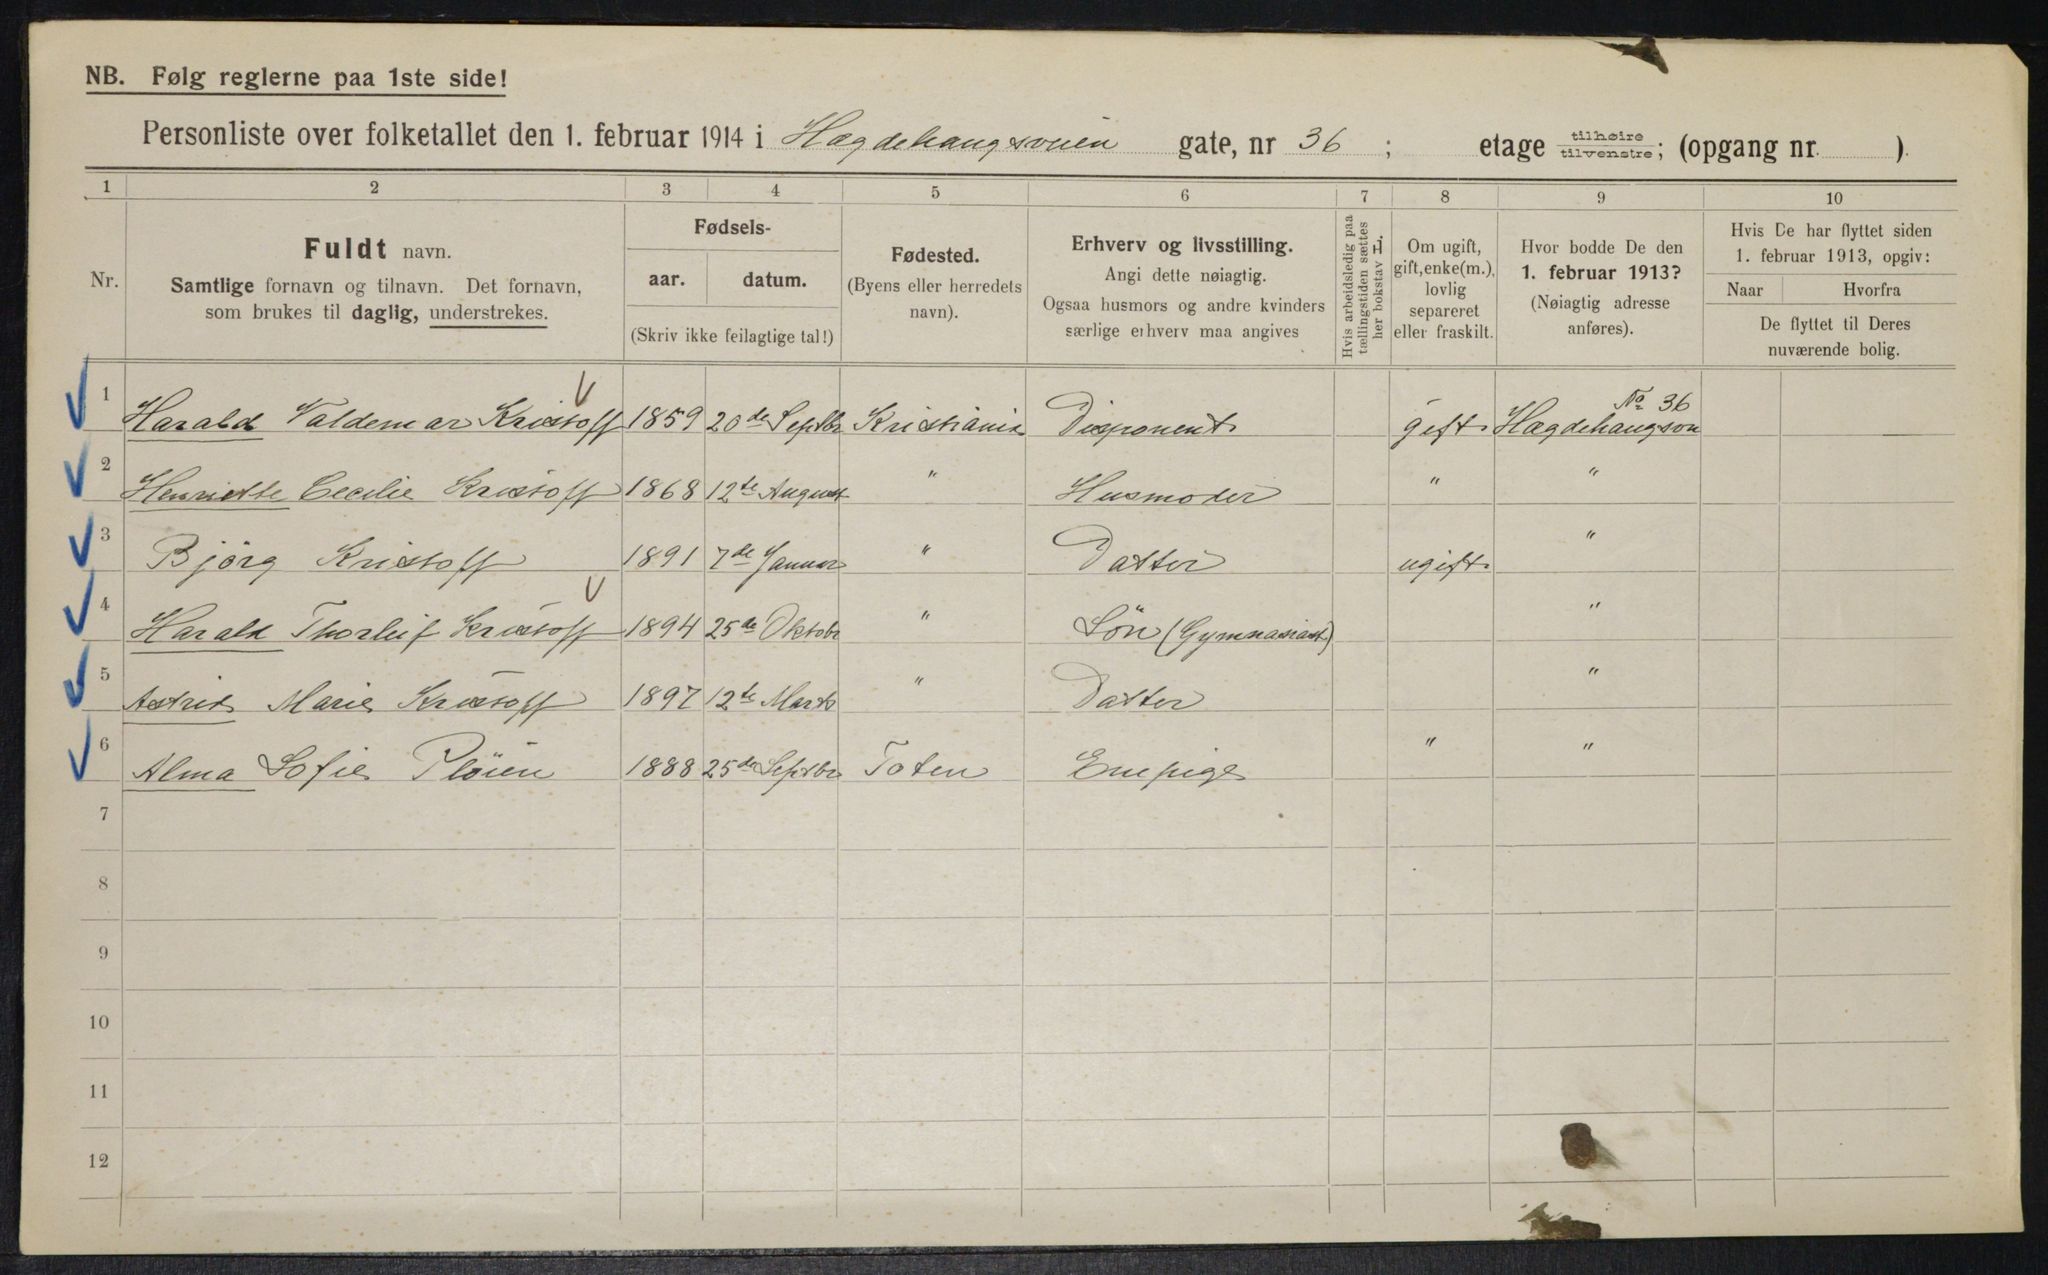 NB. Følg reglerne paa 1ste side!
Personliste over folketallet den 1. februar 1914 i Hægdehaugsveien gate, nr 36 ; etage tilhøire/tilvenstre; (opgang nr. ).
1 2 3 4 5 6 7 8 9 10
Nr.
Fuldt navn.
Samtlige fornavn og tilnavn. Det fornavn,
som brukes til daglig, understrekes.
Fødsels-
aar. datum.
(Skriv ikke feilagtige tal!)
Fødested.
(Byens eller herredets
navn).
Erhverv og livsstilling.
Angi dette nøiagtig.
Ogsaa husmors og andre kvinders
særlige erhverv maa angives
Hvis arbeidsledig paa
tællingstiden sættes
her bokstav L.
Om ugift,
gift, enke(m.),
lovlig
separeret
eller fraskilt.
Hvor bodde De den
1. februar 1913?
(Nøiagtig adresse
anføres).
Hvis De har flyttet siden
1. februar 1913, opgiv:
Naar Hvorfra
De flyttet til Deres
nuværende bolig.
No 36
1 Harald Valdemar Kristoff 1859 20de Septbr Kristiania Disponent gift Hægdehaugsvn
2 Henriette Cecilie Kristoff 1868 12te August " Husmoder " "
3 Bjørg Kristoff 1891 7de Januar " Datter ugift "
4 Harald Thorleif Kristoff 1894 25de Oktobr " Sön (Gymnasiast) "
5 Astrid Marie Kristoff 1897 12te Marts " Datter "
6 Alma Sofie Plöien 1888 25de Septbr Toten Enepige " "
7
8
9
10
11
12